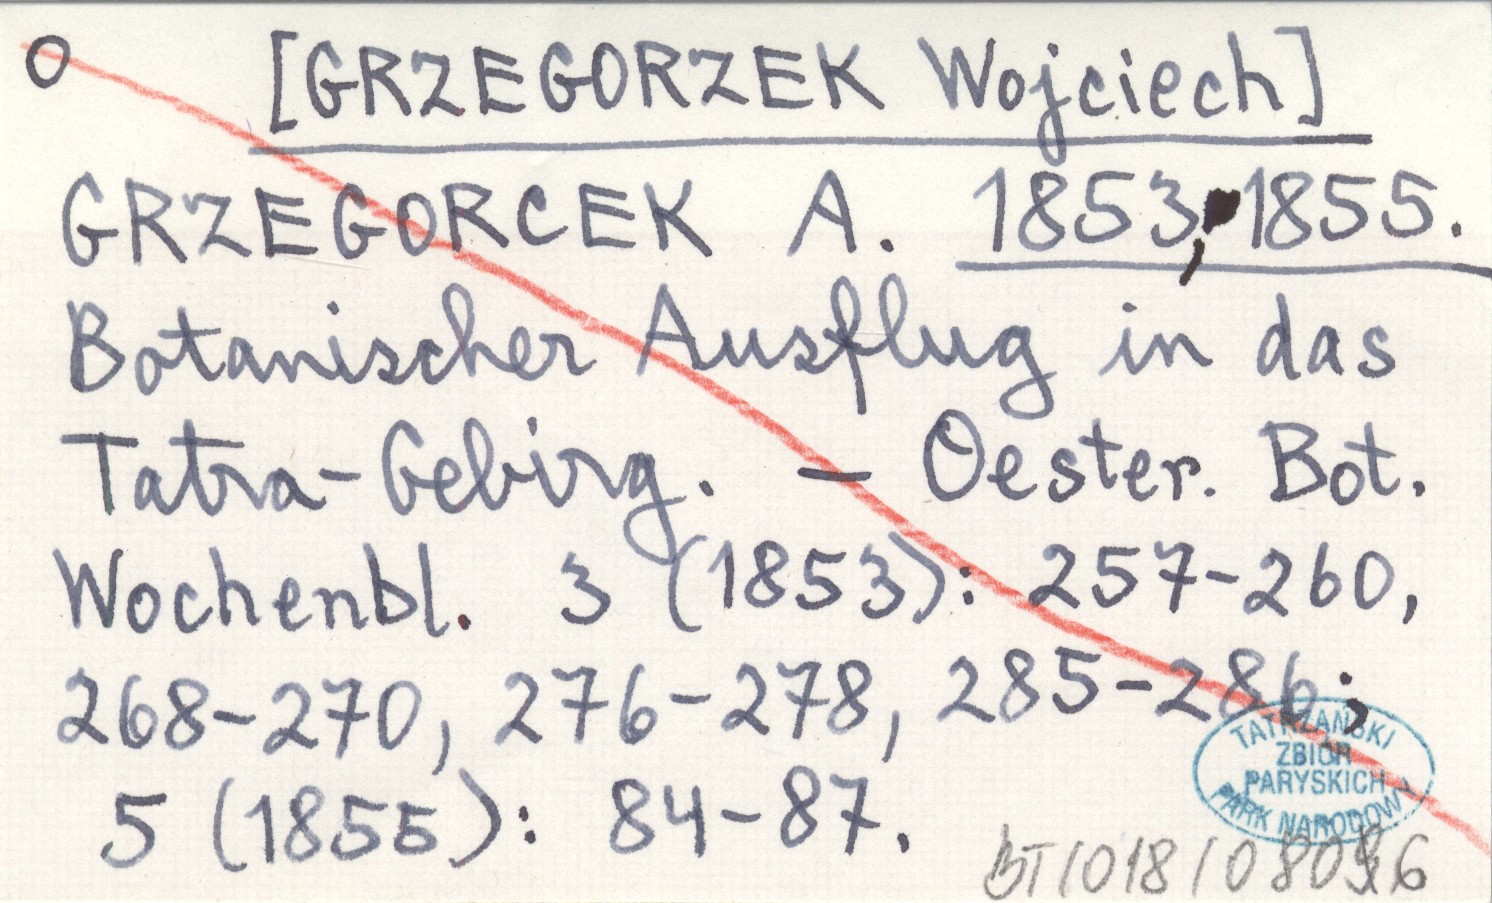 O [GRZEGORZEK Wojciech]
GRZEGORCEK A. 1853, 1855.
Botanischer Ausflug in das
Tatra-Gebirg. – Oester. Bot.
Wochenbl. 3 (1853): 257-260,
268-270, 276-278, 285-286;
5 (1855): 84-87.
TATRZAŃSKI
ZBIÓR
PARYSKICH
PARK NARODOWY